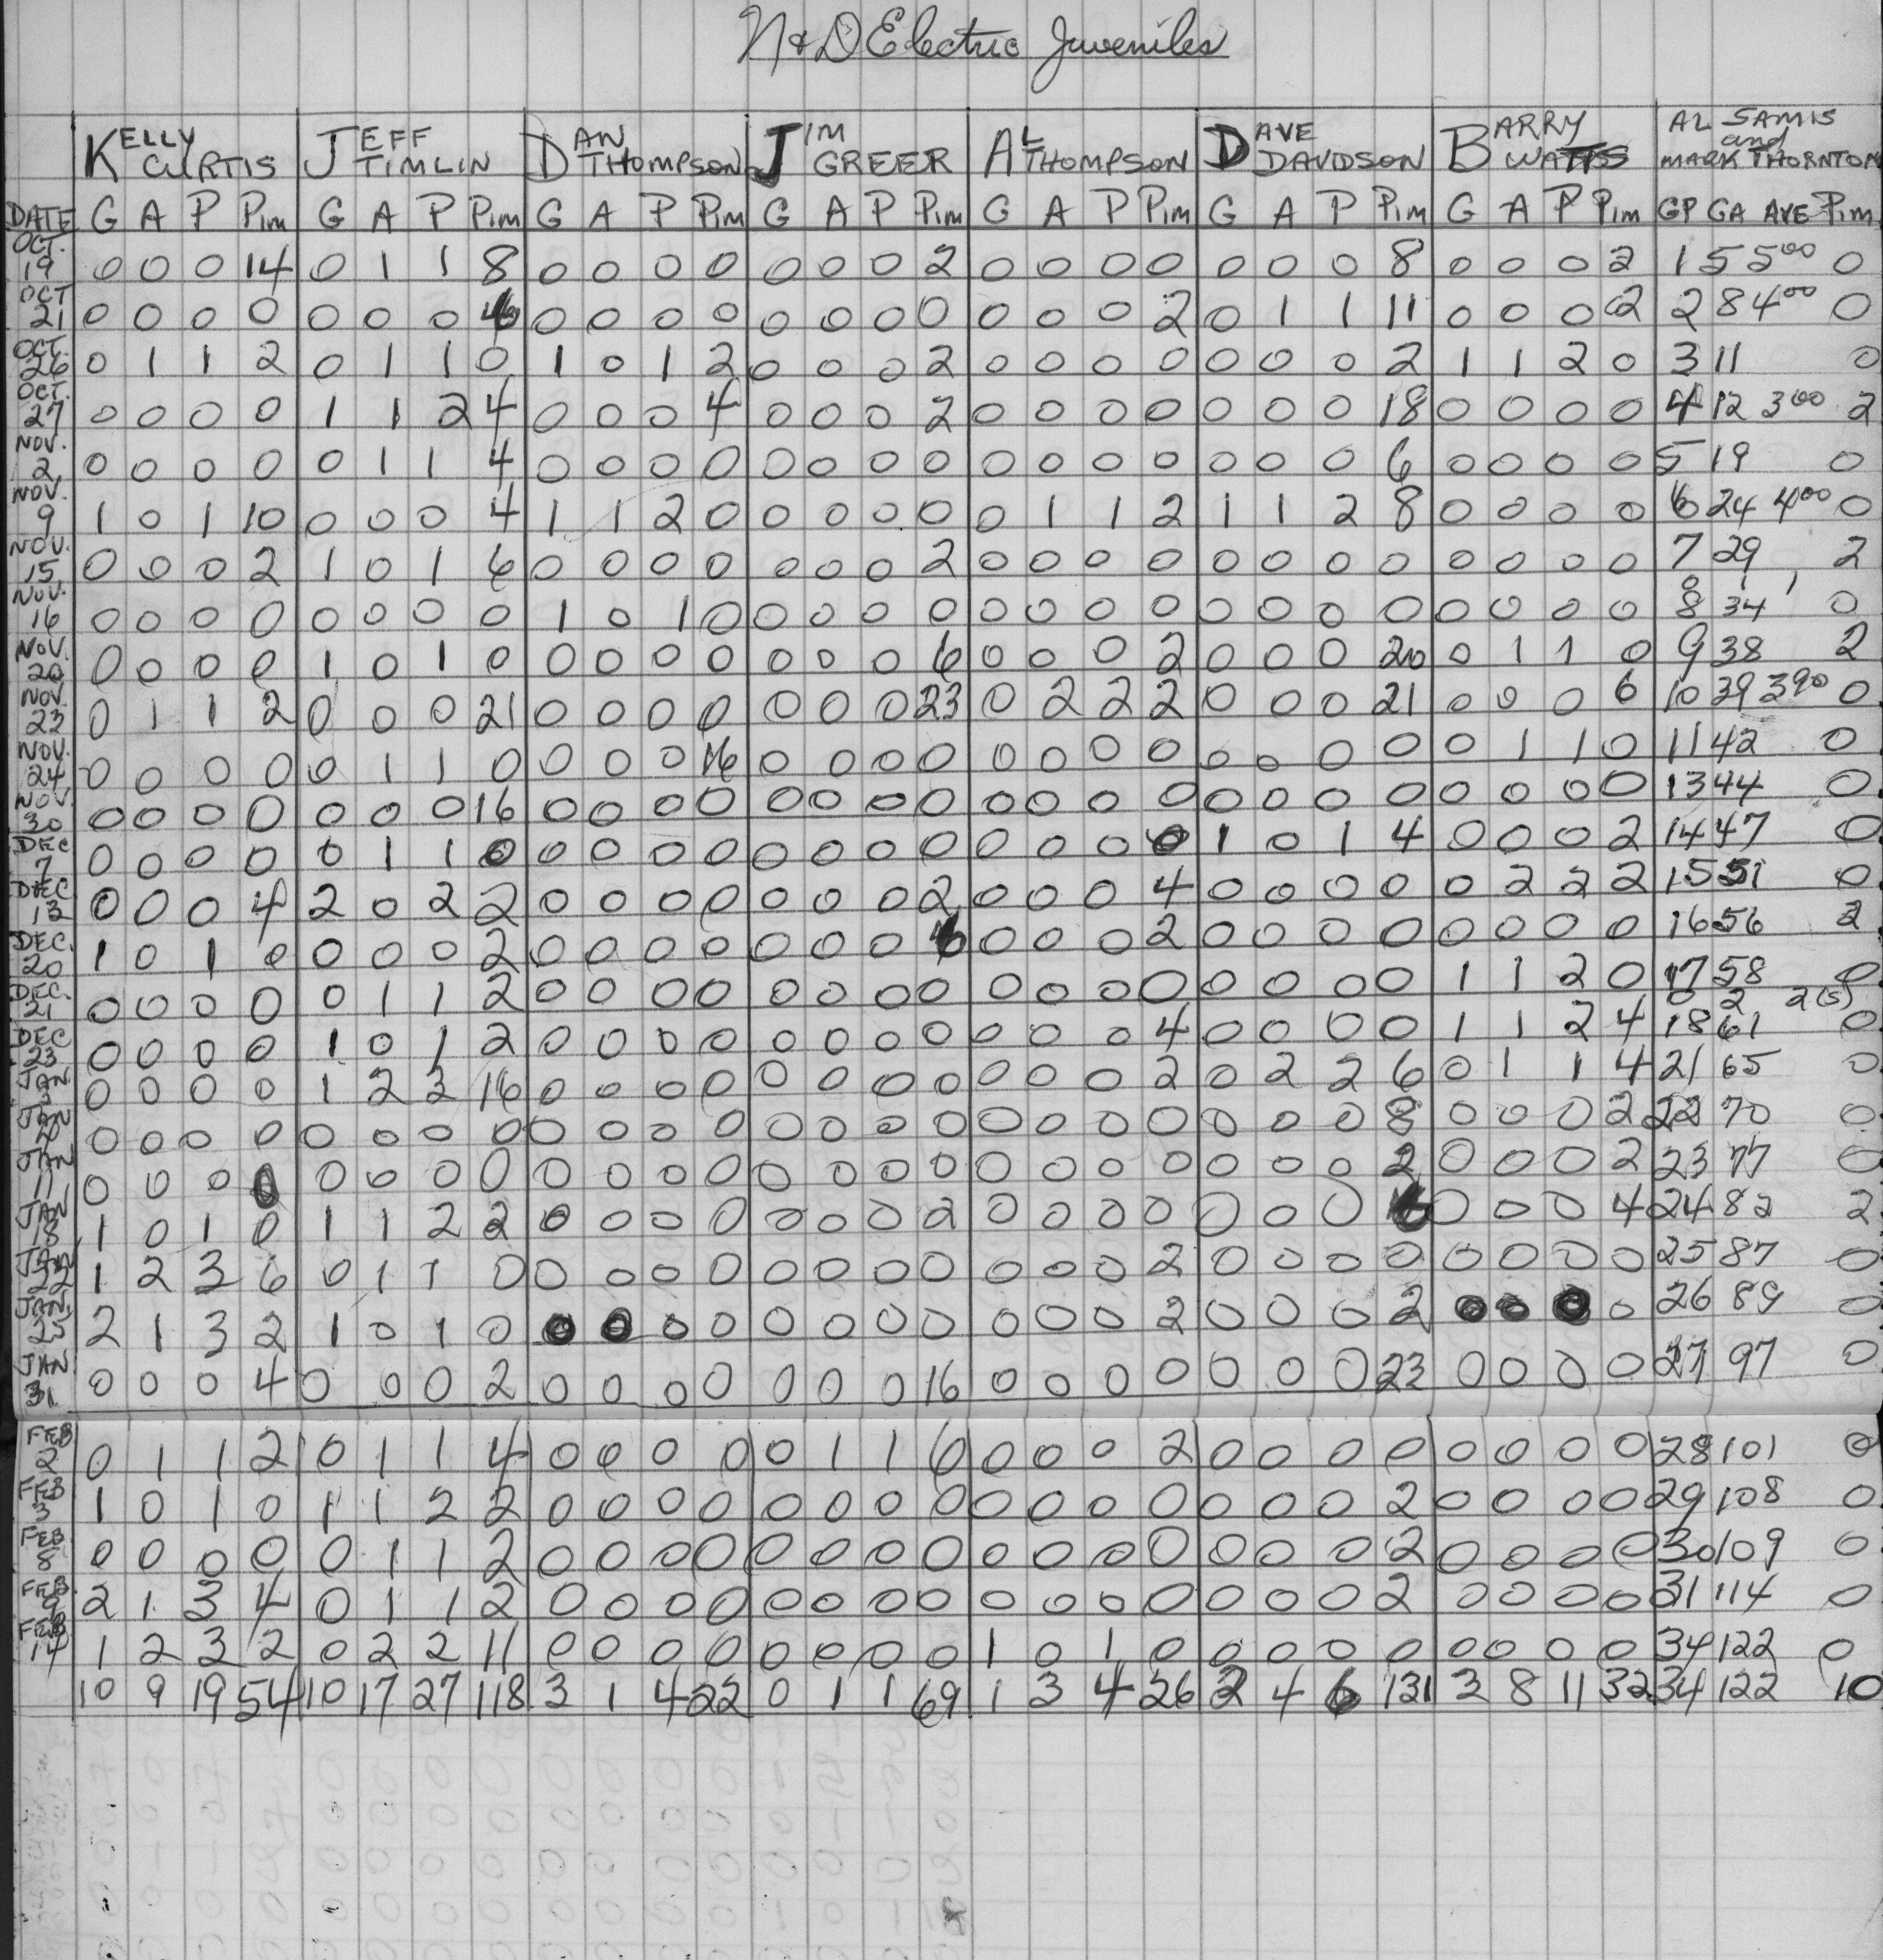 N+D Electric Juveniles
KELLY CURTIS JEFF TIMLIN DAN THOMPSON JIM GREER AL THOMPSON DAVE DAVIDSON BARRY WATTS AL SAMIS and MARK THORNTON
DATE G A P Pim G A P Pim G A P Pim G A P Pim G A P Pim G A P Pim G A P Pim GP GA AVE Pim
OCT. 19 0 0 0 14 0 1 1 8 0 0 0 0 0 0 0 2 0 0 0 0 0 0 0 8 0 0 0 2 1 5 5.00 0
OCT 21 0 0 0 0 0 0 0 0 0 0 0 0 0 0 0 0 0 0 2 0 1 1 11 0 0 0 2 2 8 4.00 0
OCT. 26 0 1 1 2 0 1 1 0 1 0 1 2 0 0 0 2 0 0 0 0 0 0 0 2 1 1 2 0 3 11 0
OCT. 27 0 0 0 0 1 1 2 4 0 0 0 4 0 0 0 2 0 0 0 0 0 0 0 18 0 0 0 0 4 12 3.00 2
NOV. 2 0 0 0 0 0 1 1 4 0 0 0 0 0 0 0 0 0 0 0 0 0 0 0 6 0 0 0 0 5 19 0
NOV. 9 1 0 1 10 0 0 0 4 1 1 2 0 0 0 0 0 0 1 1 2 1 1 2 8 0 0 0 0 6 24 4.00 0
NOV. 15 0 0 0 2 1 0 1 6 0 0 0 0 0 0 0 2 0 0 0 0 0 0 0 0 0 0 0 0 7 29 2
NOV. 16 0 0 0 0 0 0 0 0 1 0 1 0 0 0 0 0 0 0 0 0 0 0 0 0 0 0 0 0 8 34 0
NOV. 20 0 0 0 0 1 0 1 0 0 0 0 0 0 0 0 6 0 0 0 2 0 0 0 20 0 1 1 0 9 38 2
NOV. 23 0 1 1 2 0 0 0 21 0 0 0 0 0 0 0 23 0 2 2 2 0 0 0 21 0 0 0 6 10 39 3.90 0
NOV. 24 0 0 0 0 0 1 1 0 0 0 0 16 0 0 0 0 0 0 0 0 0 0 0 0 0 1 1 0 11 42 0
NOV. 30 0 0 0 0 0 0 0 16 0 0 0 0 0 0 0 0 0 0 0 0 0 0 0 0 0 0 0 0 13 44 0
DEC 7 0 0 0 0 0 1 1 0 0 0 0 0 0 0 0 0 0 0 0 0 1 0 1 4 0 0 0 2 14 47 0
DEC 13 0 0 0 4 2 0 2 2 0 0 0 0 0 0 0 2 0 0 0 4 0 0 0 0 0 2 2 2 15 51 0
DEC. 20 1 0 1 0 0 0 0 2 0 0 0 0 0 0 0 0 0 0 2 0 0 0 0 0 0 0 0 16 56 2
DEC. 21 0 0 0 0 0 1 1 2 0 0 0 0 0 0 0 0 0 0 0 0 0 0 0 0 1 1 2 0 17 58 0
0 2 2(s)
DEC 23 0 0 0 0 1 0 1 2 0 0 0 0 0 0 0 0 0 0 0 4 0 0 0 0 1 1 2 4 18 61 0
JAN 0 0 0 0 1 2 3 16 0 0 0 0 0 0 0 0 0 0 0 2 0 2 2 6 0 1 1 4 21 65 0
JAN 0 0 0 0 0 0 0 0 0 0 0 0 0 0 0 0 0 0 0 0 0 0 0 8 0 0 0 2 22 70 0
JAN 11 0 0 0 0 0 0 0 0 0 0 0 0 0 0 0 0 0 0 0 0 0 0 0 2 0 0 0 2 23 77 0
JAN 18 1 0 1 0 1 1 2 2 0 0 0 0 0 0 0 2 0 0 0 0 0 0 0 0 0 0 4 24 82 2
JAN 22 1 2 3 6 0 1 1 0 0 0 0 0 0 0 0 0 0 0 0 2 0 0 0 0 0 0 0 0 25 87 0
JAN. 25 2 1 3 2 1 0 1 0 0 0 0 0 0 0 0 0 0 0 0 2 0 0 0 2 0 0 0 0 26 89 0
JAN 31 0 0 0 4 0 0 0 2 0 0 0 0 0 0 0 16 0 0 0 0 0 0 0 23 0 0 0 0 27 97 0
FEB 2 0 1 1 2 0 1 1 4 0 0 0 0 0 1 1 6 0 0 0 2 0 0 0 0 0 0 0 0 28 101 0
FEB 3 1 0 1 0 1 1 2 2 0 0 0 0 0 0 0 0 0 0 0 0 0 0 0 2 0 0 0 0 29 108 0
FEB 8 0 0 0 0 0 1 1 2 0 0 0 0 0 0 0 0 0 0 0 0 0 0 0 2 0 0 0 0 30 109 0
FEB 2 1 3 4 0 1 1 2 0 0 0 0 0 0 0 0 0 0 0 0 0 0 0 2 0 0 0 0 31 114 0
FEB 14 1 2 3 2 0 2 2 11 0 0 0 0 0 0 0 0 1 0 1 0 0 0 0 0 0 0 0 0 34 122 0
10 9 19 54 10 17 27 118 3 1 4 22 0 1 1 69 1 3 4 26 2 4 6 131 3 8 11 32 34 122 10